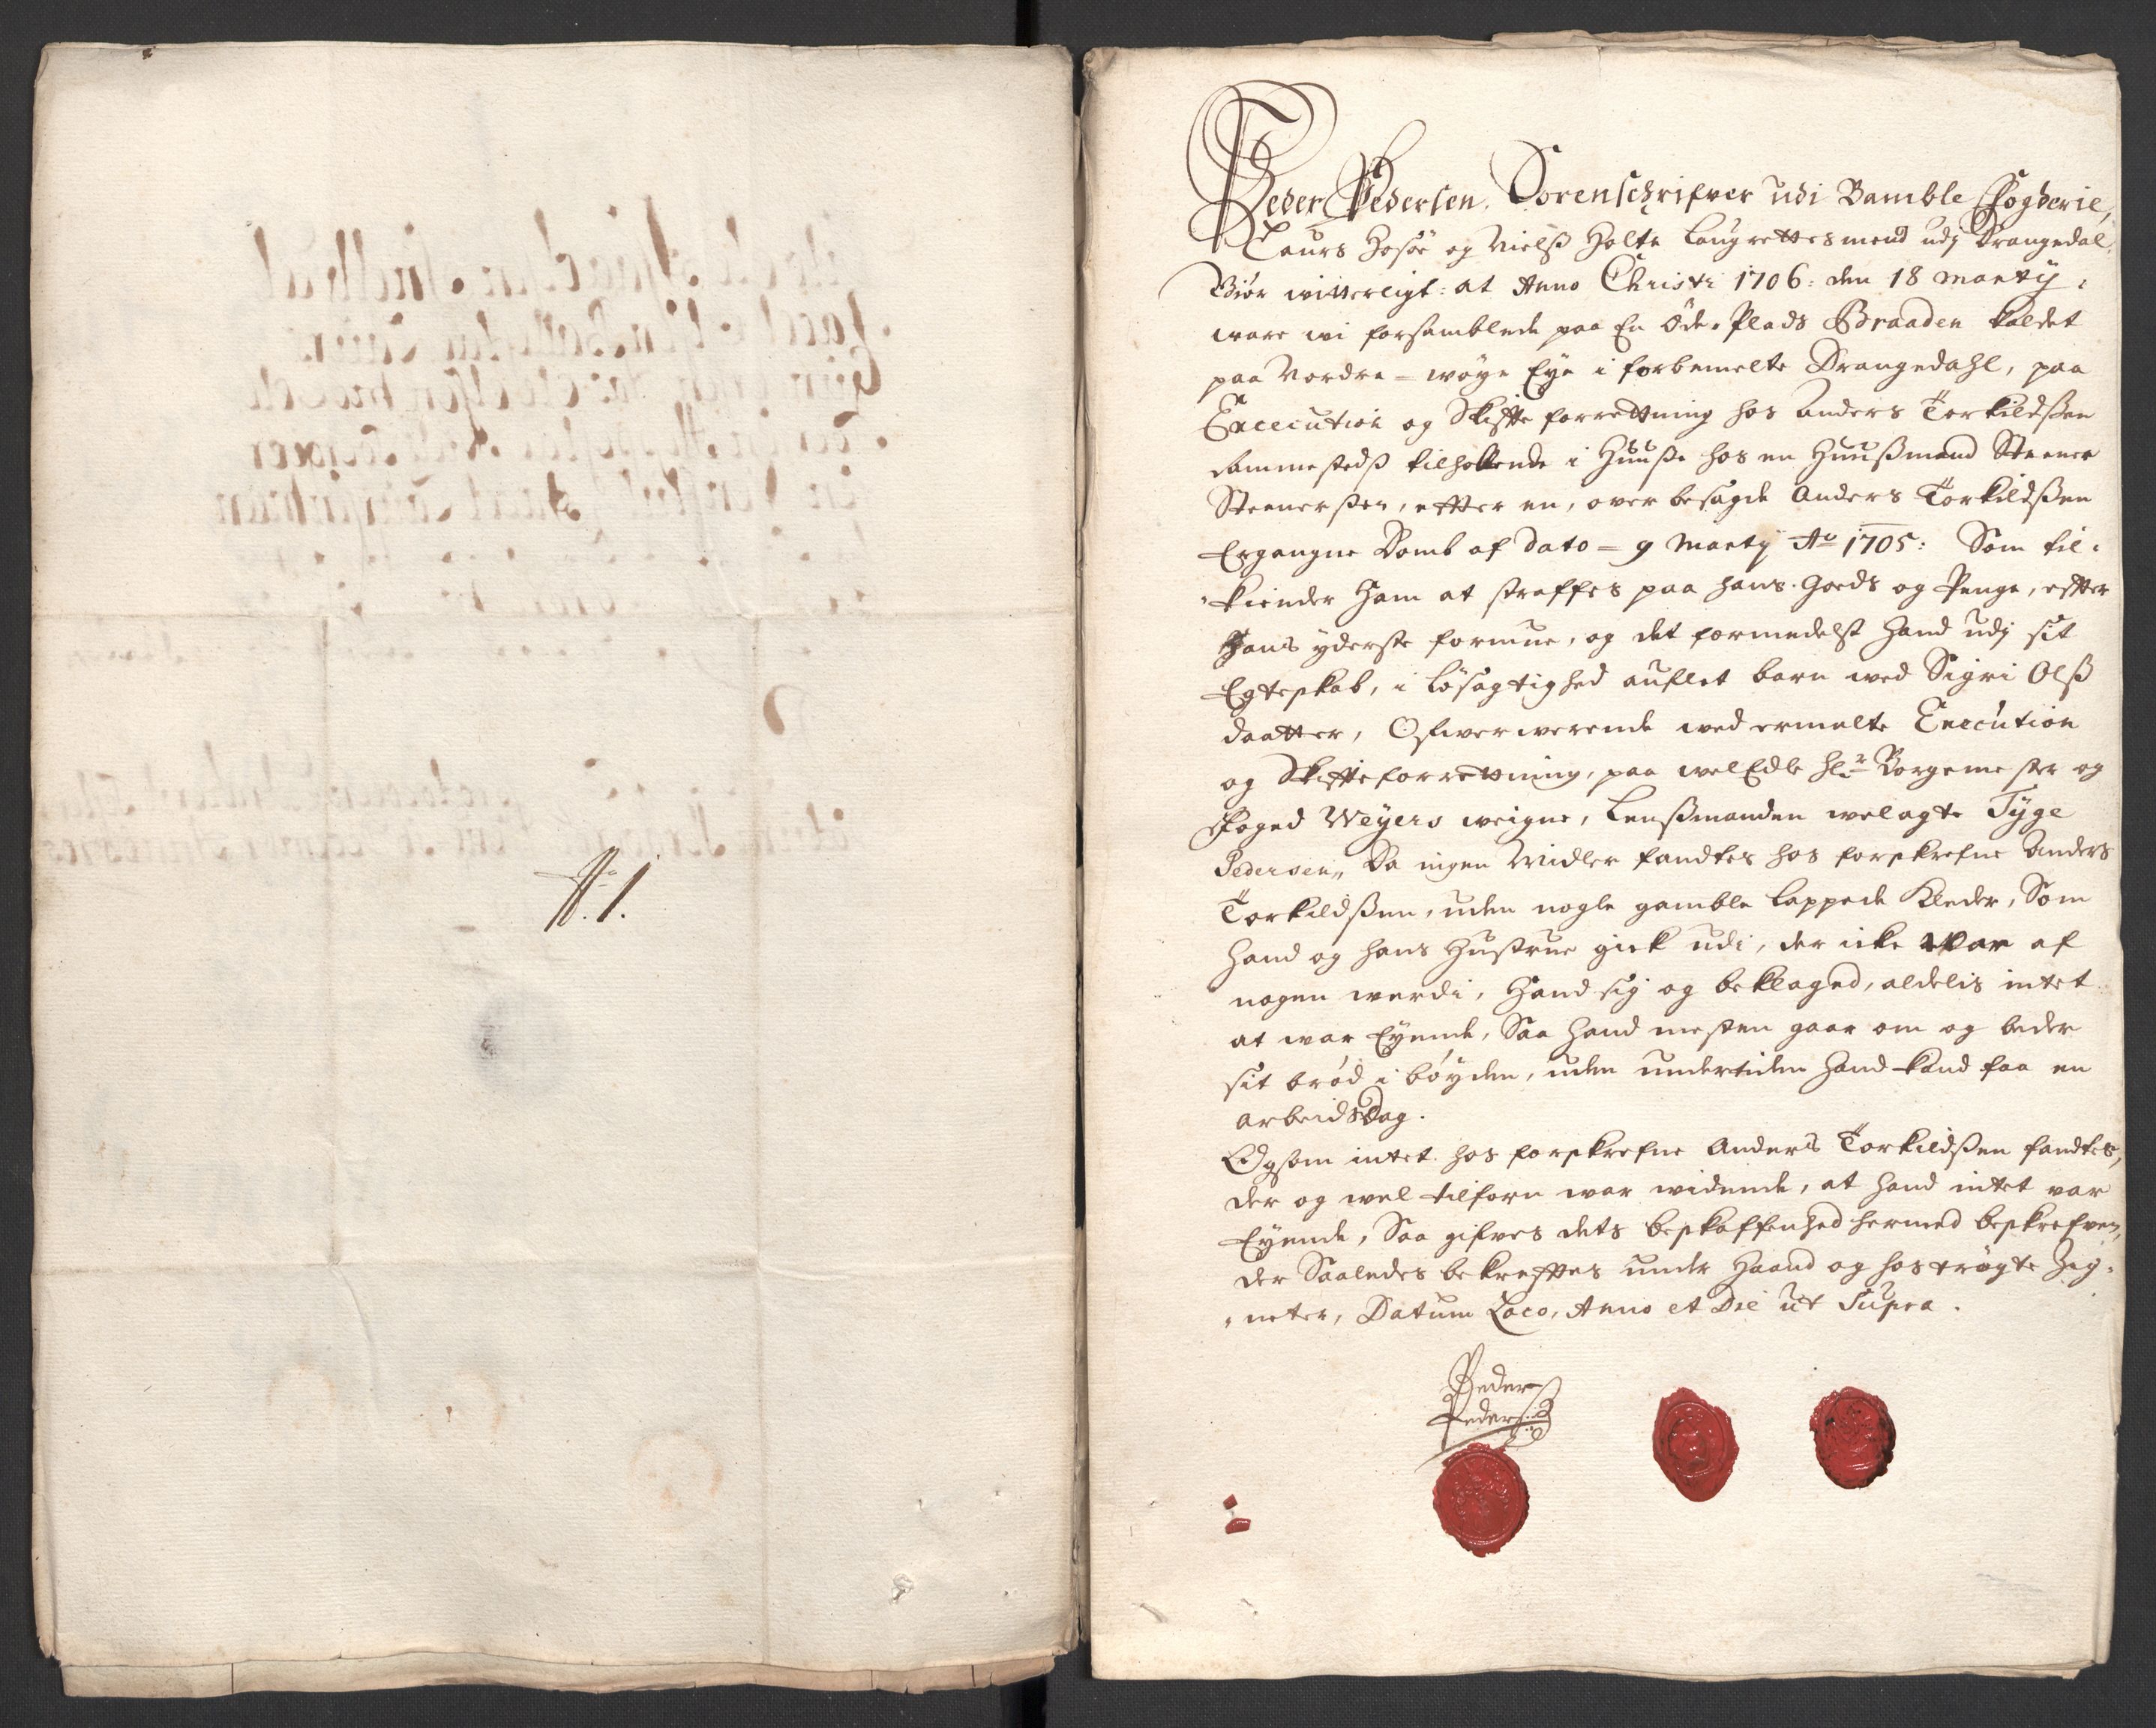 N: 1.
Peder Pedersen, Sorenschrifver udi Bamble Fogderie,
Laurs Hosøe og Nielß Holte Laugrettesmend udj Drangedal,
Giør witterligt: at Anno Christi 1706: den 18 Marty,
ware wi forsamblede paa En Öde-Plads Braaden kaldet
paa Nordre-wøye Eye i forbemelte Drangedahl, paa
Execution og Skifte forrettning hos Anders Torkildßen
sammestedß tilholdende i Huuße hos en Huußmand Steener
Steenerßen, effter en, over besagde Anders Torkildßen
Ergangne Domb af dato - 9 Marty Ao 1705: Som til-
-kiender Ham at straffes paa hans Goeds og Penge, effter
Hans yderste formue, og det formedelst Hand udj sit
Egteskab, i Løsagtighed auflet barn med Sigri Olß
daatter, Ofverwerende wed ermelte Execution
og Skifteforrettning, paa welEdle Hr. Borgemester og
Foged Weyers weigne, Lenßmanden welagte Tyge
Pedersen„ Da ingen Midler fandtes hos forskrefne Anders
Torkildßen, uden nogle gamble lappede Kleder, Som
Hand og hans Hustrue gick udi, der icke war af
nogen werdi, Hand sig og beklaged, aldelis intet
at war Eyende, Saa Hand mesten gaar om og beder
sit brød i bøyden, uden undertiden Hand kand faa en
arbeidsDag.
Og som intet hos forskrefne Anders Torkildßen fandtes,
der og wel tilforn war widende, at Hand intet war
Eyende, Saa gifves dets beskaffenhed hermed beskrefven,
der Saaledes bekrefftes under Haand og hostrøgte Zig-
-neter, Datum Loco, Anno et Die ut Supra.
Peder
Pederß